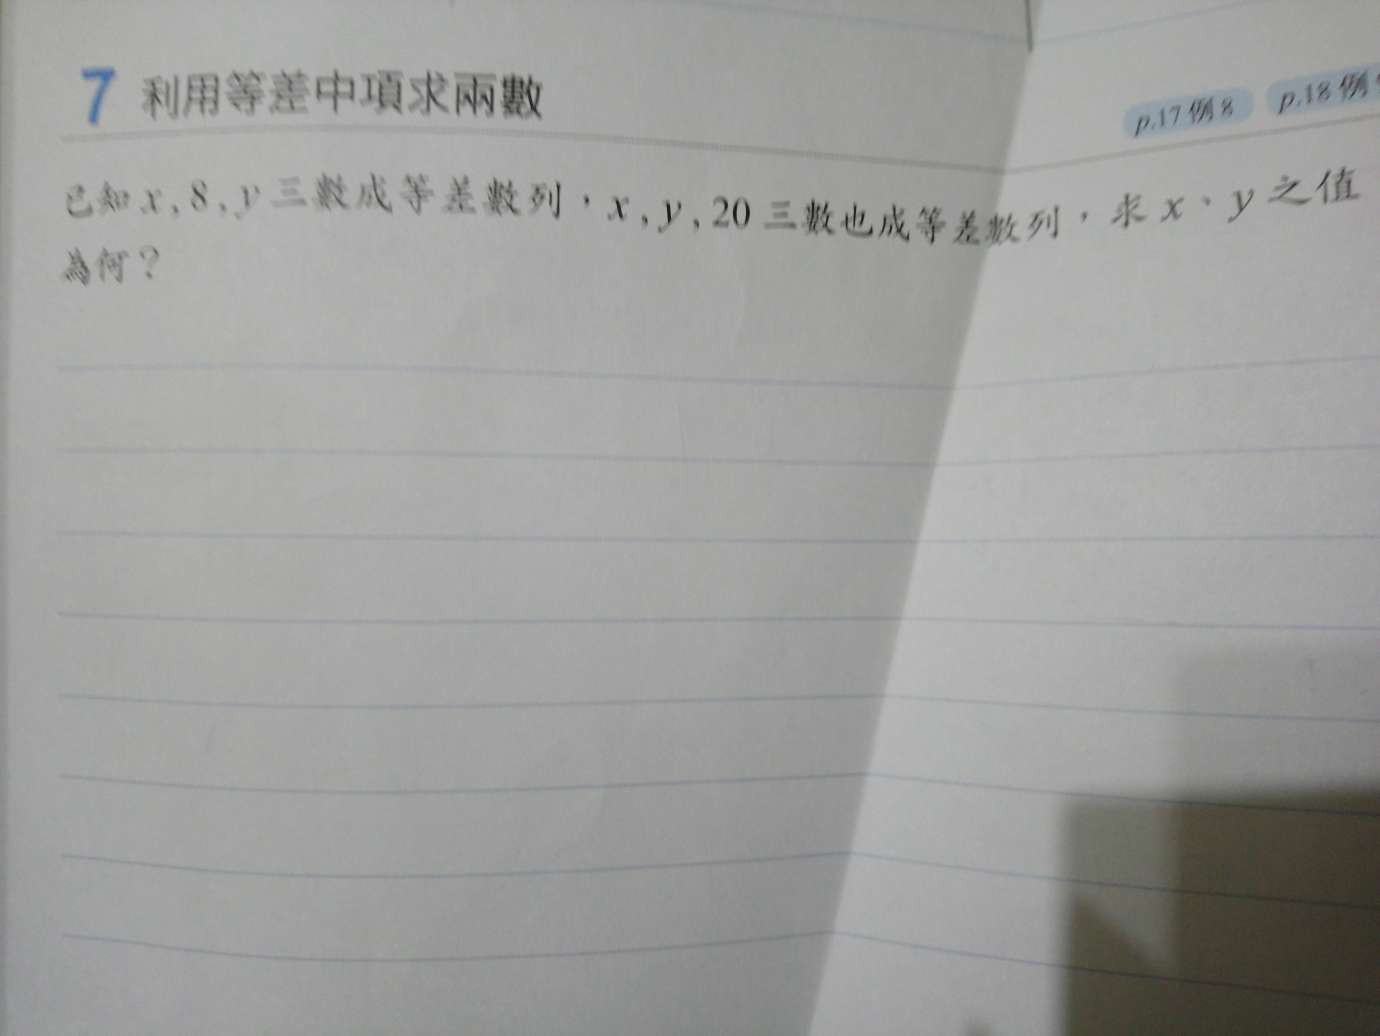 7 利用等差中項求兩數
p.17例8 p.18例
已知 x , 8 , y 三數成等差數列，x , y , 20 三數也成等差數列，求 x、y 之值
為何？